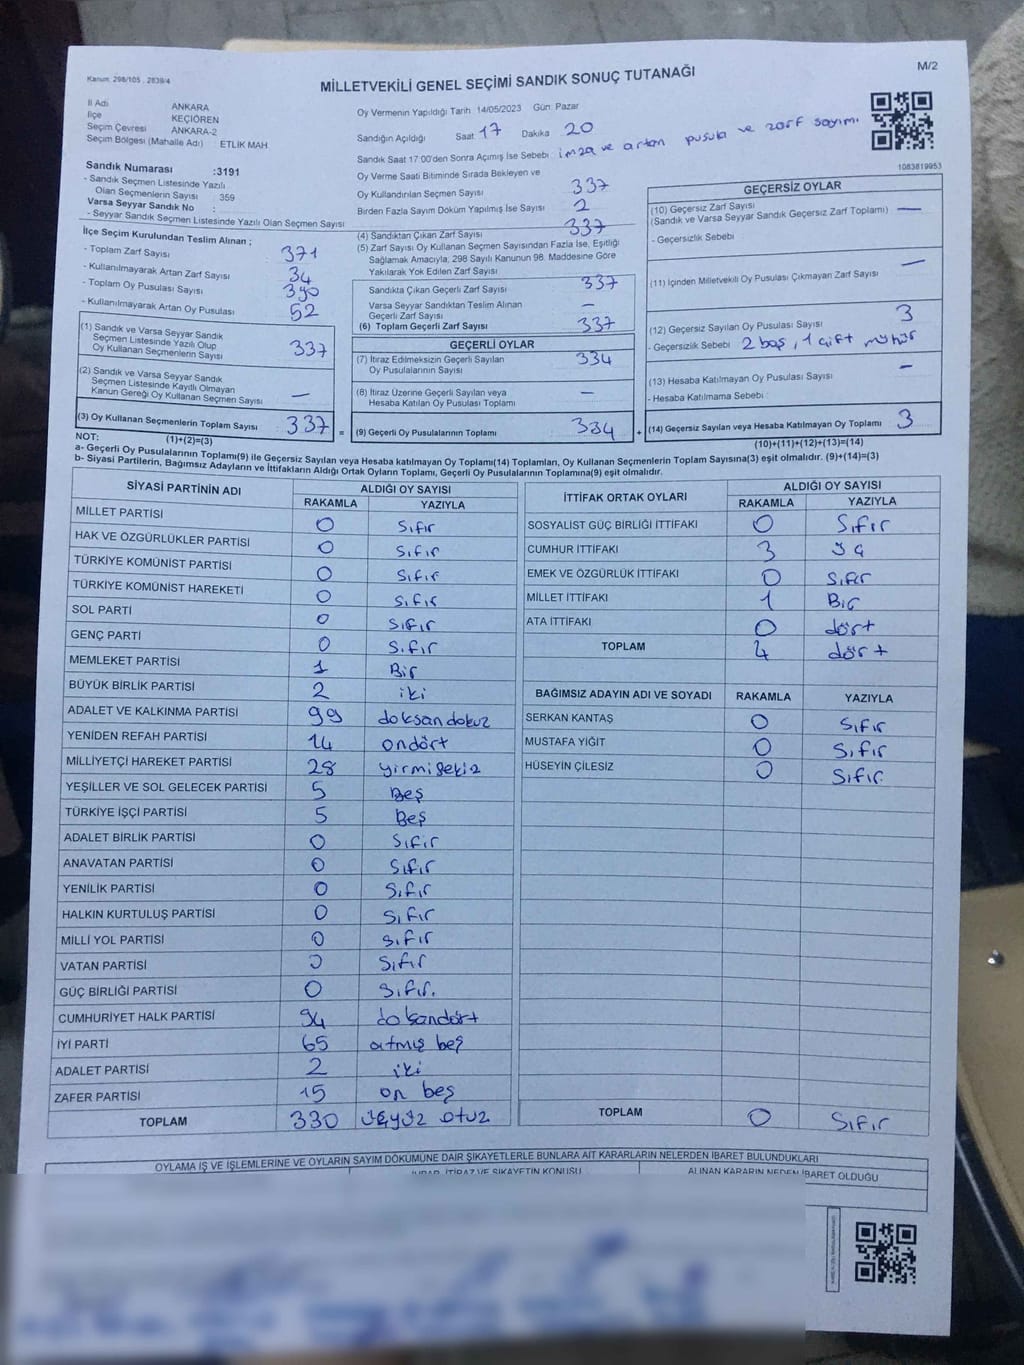 Kanun: 298/105 . 2839/4
MİLLETVEKİLİ GENEL SEÇİMİ SANDIK SONUÇ TUTANAĞI
M/2
İl Adı ANKARA
İlçe KEÇİÖREN
Seçim Çevresi ANKARA-2
Seçim Bölgesi (Mahalle Adı) : ETLİK MAH
Oy Vermenin Yapıldığı Tarih 14/05/2023 Gün: Pazar
Sandığın Açıldığı Saat 17 Dakika 20
Sandık Saat 17:00'den Sonra Açımış İse Sebebi imza ve artan pusula ve zarf sayımı
1083819953
Sandık Numarası :3191
- Sandık Seçmen Listesinde Yazılı
Olan Seçmenlerin Sayısı : 359
Varsa Seyyar Sandık No :
- Seyyar Sandık Seçmen Listesinde Yazılı Olan Seçmen Sayısı
Oy Verme Saati Bitiminde Sırada Bekleyen ve
Oy Kullandırılan Seçmen Sayısı 337
Birden Fazla Sayım Döküm Yapılmış İse Sayısı 2
İlçe Seçim Kurulundan Teslim Alınan ;
- Toplam Zarf Sayısı : 371
- Kullanılmayarak Artan Zarf Sayısı : 34
- Toplam Oy Pusulası Sayısı : 390
- Kullanılmayarak Artan Oy Pusulası : 52
(1) Sandık ve Varsa Seyyar Sandık
Seçmen Listesinde Yazılı Olup
Oy Kullanan Seçmenlerin Sayısı : 337
(2) Sandık ve Varsa Seyyar Sandık
Seçmen Listesinde Kayıtlı Olmayan
Kanun Gereği Oy Kullanan Seçmen Sayısı : —
(3) Oy Kullanan Seçmenlerin Toplam Sayısı : 337
(1)+(2)=(3)
(4) Sandıktan Çıkan Zarf Sayısı 337
(5) Zarf Sayısı Oy Kullanan Seçmen Sayısından Fazla İse, Eşitliği
Sağlamak Amacıyla, 298 Sayılı Kanunun 98. Maddesine Göre
Yakılarak Yok Edilen Zarf Sayısı
Sandıkta Çıkan Geçerli Zarf Sayısı 337
Varsa Seyyar Sandıktan Teslim Alınan
Geçerli Zarf Sayısı —
(6) Toplam Geçerli Zarf Sayısı 337
GEÇERLİ OYLAR
(7) İtiraz Edilmeksizin Geçerli Sayılan
Oy Pusulalarının Sayısı 334
(8) İtiraz Üzerine Geçerli Sayılan veya
Hesaba Katılan Oy Pusulası Toplamı —
= (9) Geçerli Oy Pusulalarının Toplamı 334
GEÇERSİZ OYLAR
(10) Geçersiz Zarf Sayısı —
(Sandık ve Varsa Seyyar Sandık Geçersiz Zarf Toplamı)
- Geçersizlik Sebebi
(11) İçinden Milletvekili Oy Pusulası Çıkmayan Zarf Sayısı —
(12) Geçersiz Sayılan Oy Pusulası Sayısı 3
- Geçersizlik Sebebi 2 boş, 1 çift mühür
(13) Hesaba Katılmayan Oy Pusulası Sayısı —
- Hesaba Katılmama Sebebi :
+ (14) Geçersiz Sayılan veya Hesaba Katılmayan Oy Toplamı 3
(10)+(11)+(12)+(13)=(14)
NOT:
a- Geçerli Oy Pusulalarının Toplamı(9) ile Geçersiz Sayılan veya Hesaba katılmayan Oy Toplamı(14) Toplamları, Oy Kullanan Seçmenlerin Toplam Sayısına(3) eşit olmalıdır. (9)+(14)=(3)
b- Siyasi Partilerin, Bağımsız Adayların ve İttifakların Aldığı Ortak Oyların Toplamı, Geçerli Oy Pusulalarının Toplamına(9) eşit olmalıdır.
SİYASİ PARTİNİN ADI ALDIĞI OY SAYISI
RAKAMLA YAZIYLA
MİLLET PARTİSİ 0 Sıfır
HAK VE ÖZGÜRLÜKLER PARTİSİ 0 Sıfır
TÜRKİYE KOMÜNİST PARTİSİ 0 Sıfır
TÜRKİYE KOMÜNİST HAREKETİ 0 Sıfır
SOL PARTİ 0 Sıfır
GENÇ PARTİ 0 Sıfır
MEMLEKET PARTİSİ 1 Bir
BÜYÜK BİRLİK PARTİSİ 2 iki
ADALET VE KALKINMA PARTİSİ 99 doksan dokuz
YENİDEN REFAH PARTİSİ 14 ondört
MİLLİYETÇİ HAREKET PARTİSİ 28 yirmisekiz
YEŞİLLER VE SOL GELECEK PARTİSİ 5 Beş
TÜRKİYE İŞÇİ PARTİSİ 5 Beş
ADALET BİRLİK PARTİSİ 0 Sıfır
ANAVATAN PARTİSİ 0 Sıfır
YENİLİK PARTİSİ 0 Sıfır
HALKIN KURTULUŞ PARTİSİ 0 Sıfır
MİLLİ YOL PARTİSİ 0 Sıfır
VATAN PARTİSİ 0 Sıfır
GÜÇ BİRLİĞİ PARTİSİ 0 Sıfır.
CUMHURİYET HALK PARTİSİ 94 doksandört
İYİ PARTİ 65 atmış beş
ADALET PARTİSİ 2 iki
ZAFER PARTİSİ 15 on beş
TOPLAM 330 üçyüz otuz
İTTİFAK ORTAK OYLARI ALDIĞI OY SAYISI
RAKAMLA YAZIYLA
SOSYALİST GÜÇ BİRLİĞİ İTTİFAKI 0 Sıfır
CUMHUR İTTİFAKI 3 üç
EMEK VE ÖZGÜRLÜK İTTİFAKI 0 Sıfır
MİLLET İTTİFAKI 1 Bir
ATA İTTİFAKI 0 dört
TOPLAM 4 dört
BAĞIMSIZ ADAYIN ADI VE SOYADI RAKAMLA YAZIYLA
SERKAN KANTAŞ 0 Sıfır
MUSTAFA YİĞİT 0 Sıfır
HÜSEYİN ÇİLESİZ 0 Sıfır
TOPLAM 0 Sıfır
OYLAMA İŞ VE İŞLEMLERİNE VE OYLARIN SAYIM DÖKÜMÜNE DAİR ŞİKAYETLERLE BUNLARA AİT KARARLARIN NELERDEN İBARET BULUNDUKLARI
İHBAR, İTİRAZ VE ŞİKAYETİN KONUSU ALINAN KARARIN NEDEN İBARET OLDUĞU